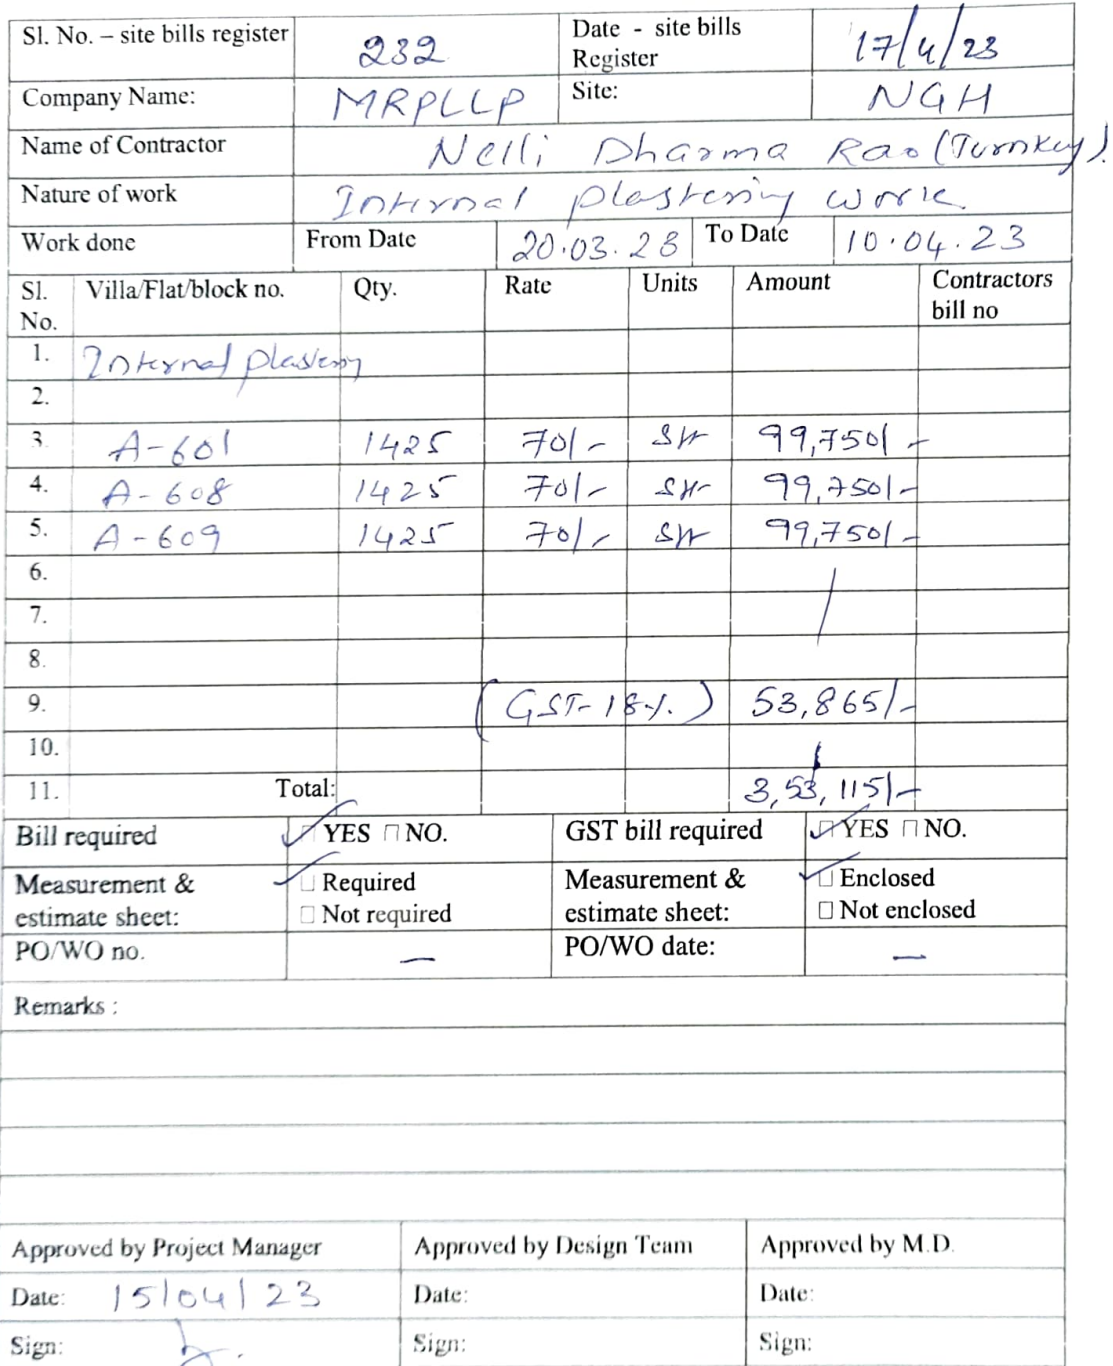 Sl. No. – site bills register 232 Date - site bills Register 17/4/23
Company Name: MRPLLP Site: NGH
Name of Contractor Nelli Dharma Rao (Turnkey).
Nature of work Internal plastering work.
Work done From Date 20.03.23 To Date 10.04.23
Sl. No. Villa/Flat/block no. Qty. Rate Units Amount Contractors bill no
1. Internal plastering
2.
3. A-601 1425 70/- Sft 99,750/-
4. A-608 1425 70/- Sft 99,750/-
5. A-609 1425 70/- Sft 99,750/-
6.
7.
8.
9. (GST-18%) 53,865/-
10.
11. Total: 3,53,115/-
Bill required YES NO. GST bill required YES NO.
Measurement & estimate sheet: Required Not required Measurement & estimate sheet: Enclosed Not enclosed
PO/WO no. — PO/WO date: —
Remarks :
Approved by Project Manager Approved by Design Team Approved by M.D.
Date: 15/04/23 Date: Date:
Sign: Sign: Sign: